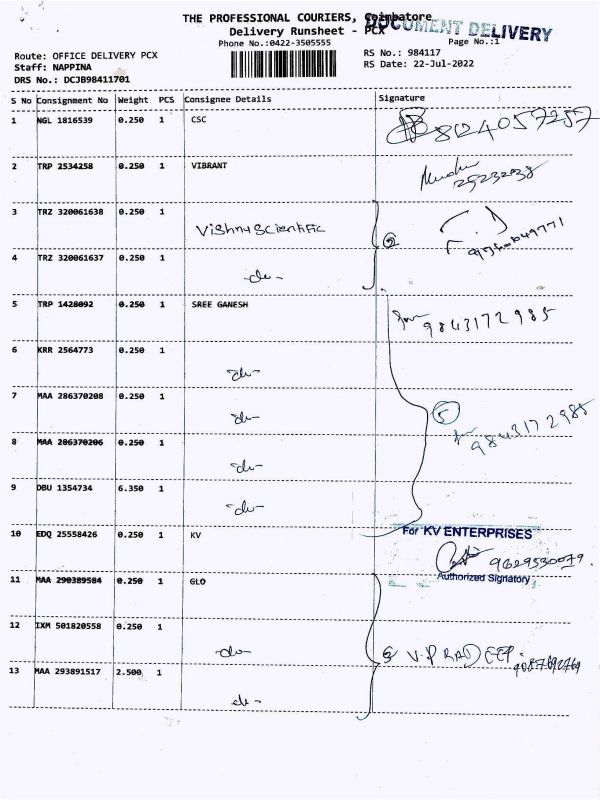 THE PROFESSIONAL COURIERS, Coimbatore
DOCUMENT DELIVERY
Delivery Runsheet - PCX
Phone No.:0422-3505555
Page No.:1
Route: OFFICE DELIVERY PCX
RS No.: 984117
Staff: NAPPINA
RS Date: 22-Jul-2022
DRS No.: DCJB98411701
S No Consignment No Weight PCS Consignee Details Signature
1 NGL 1816539 0.250 1 CSC 8124057257
2 TRP 2534258 0.250 1 VIBRANT 2523238
3 TRZ 320061638 0.250 1 Vishnu Scientific
2
4 TRZ 320061637 0.250 1 -do-
5 TRP 1428092 0.250 1 SREE GANESH 9843172985
6 KRR 2564773 0.250 1 -do-
7 MAA 286370208 0.250 1 -do- 5 9843172985
8 MAA 286370206 0.250 1 -do-
9 DBU 1354734 6.350 1 -do-
10 EDQ 25558426 0.250 1 KV For KV ENTERPRISES
9629530079.
Authorized Signatory
11 MAA 290389584 0.250 1 GLO
12 IXM 501820558 0.250 1 -do- V.PRADEEP.
13 MAA 293891517 2.500 1 -do-